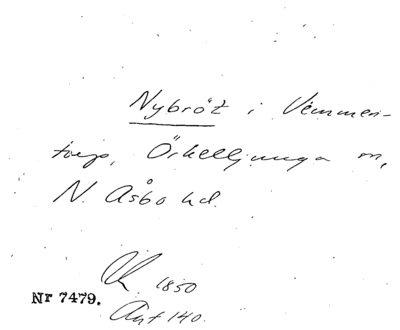 Nybröt i Vemmen-
torp, Örkelljunga sn,
N. Åsbo hd.
1850
Nr 7479.
Akt 140.